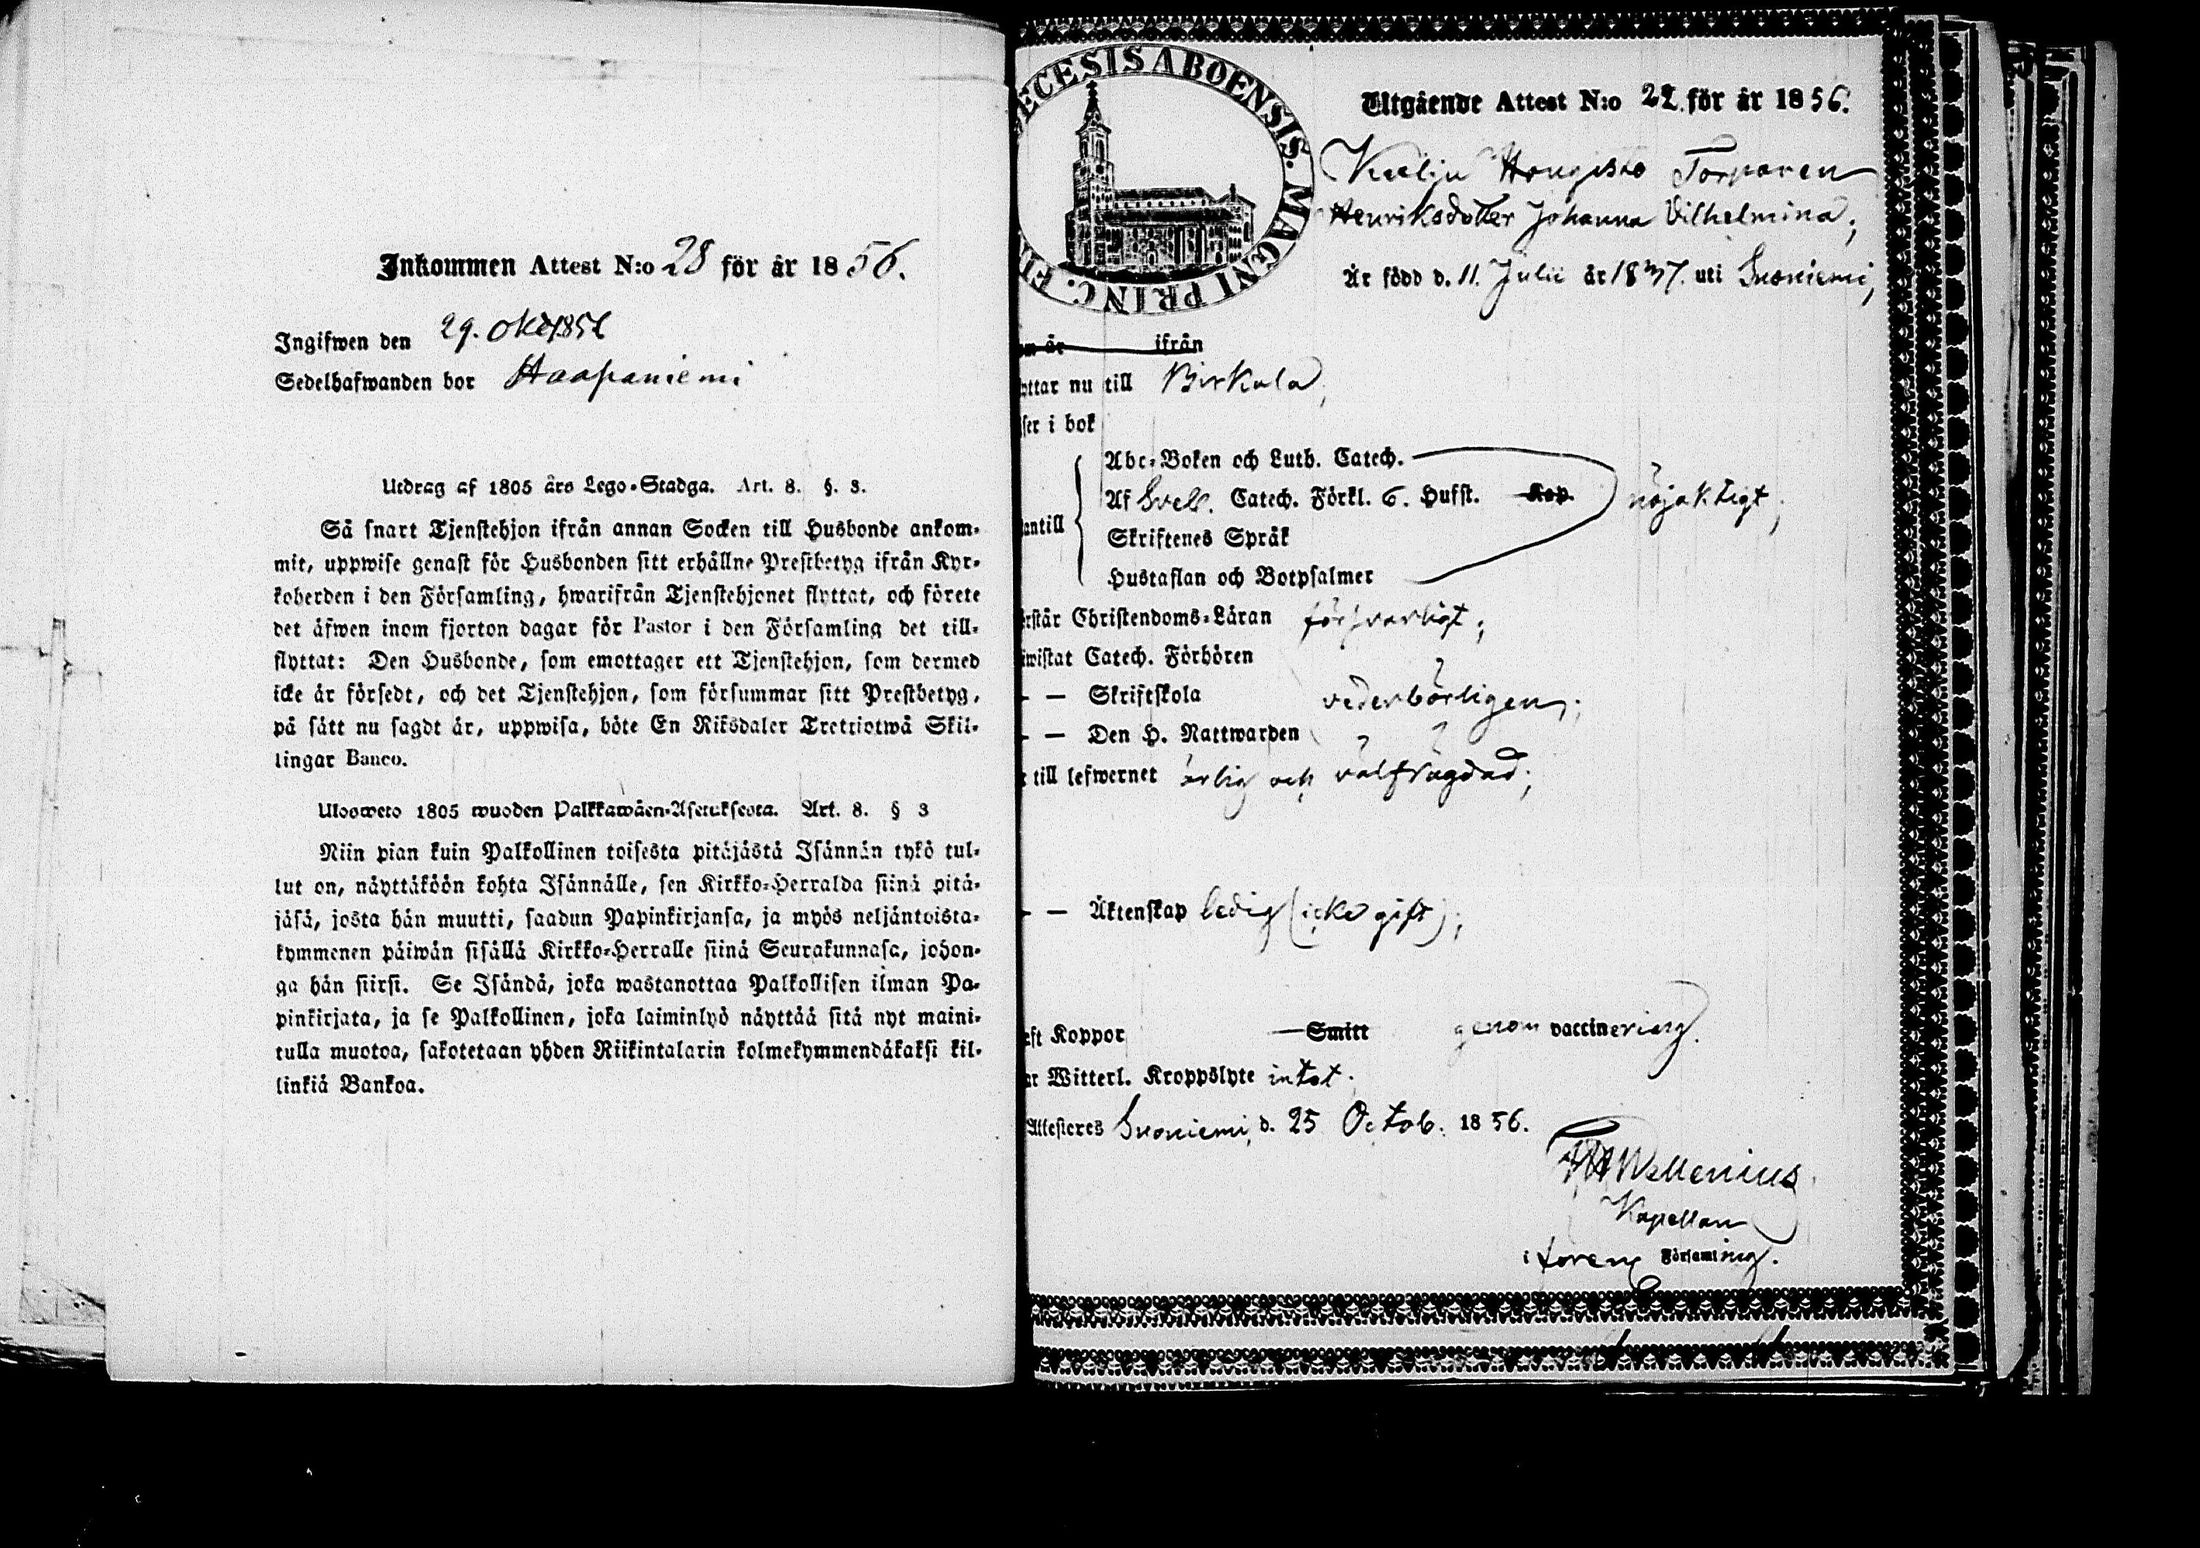 Inkommen Attest N:o 28 för år 1856.
Ingifwen den 29. Okt 1856
Sedelhafwanden bor Haapaniemi
Utdrag af 1805 års Lego-Stadga. Art. 8. §. 3.
Så snart Tjenstehjon ifrån annan Socken till Husbonde ankom-
mit, uppwise genast för Husbonden sitt erhållne Prestbetyg ifrån Kyr-
koherden i den Församling, hwarifrån Tjenstehjonet flyttat, och förete
det äfwen inom fjorton dagar för Pastor i den Församling det till-
flyttat: Den Husbonde, som emottager ett Tjenstehjon, som dermed
icke är försedt, och det Tjenstehjon, som försummar sitt Prestbetyg,
på sätt nu sagdt är, uppwisa, böte En Riksdaler Trettiotwå Skil-
lingar Banco.
Ulosweto 1805 wuoden Palkkawäen-Asetuksesta. Art. 8. § 3
Niin pian kuin Palkollinen toisesta pitäjästä Isännän tykö tul-
lut on, näyttäköön kohta Isännälle, sen Kirkko-Herralda siinä pitä-
jäsä, josta hän muutti, saadun Papinkirjansa, ja myös neljäntoista-
kymmenen päiwän sisällä Kirkko-Herralle siinä Seurakunnasa, johon-
ga hän siirsi. Se Isändä, joka wastanottaa Palkollisen ilman Pa-
pinkirjata, ja se Palkollinen, joka laiminlyö näyttää sitä nyt maini-
tulla muotoa, sakotetaan yhden Riikintalarin kolmekymmendäkaksi kil-
linkiä Bankoa.
ECESIS ABOENSIS. MAGNI PRINC. FI
Utgående Attest N:o 22 för år 1856.
Hongisto Torparen
Henriksdotter Johanna Vilhelmina;
Är född d. 11. Julii år 1837. uti Suoniemi,
år ifrån
yttar nu till Birkala,
ser i bok
Abc-Boken och Luth. Catech.
Af Sveb. Catech. Förkl. 6. Hufst. Kap. nöjaktigt;
antill
Skriftenes Språk
Hustaflan och Botpsalmer
rstår Christendoms-Läran försvarligt;
iwistat Catech. Förhören
– – Skriftskola vederbörligen;
– – Den H. Nattwarden
till lefwernet ärlig och välfrägdad;
– – Äktenskap ledig (icke gift);
ft Koppor Smitt genom vaccinering.
ar Witterl. Kroppslyte intet.
Attesteres Suoniemi, d. 25 Octob. 1856.
Wellenius
Kapellan
i Församling.